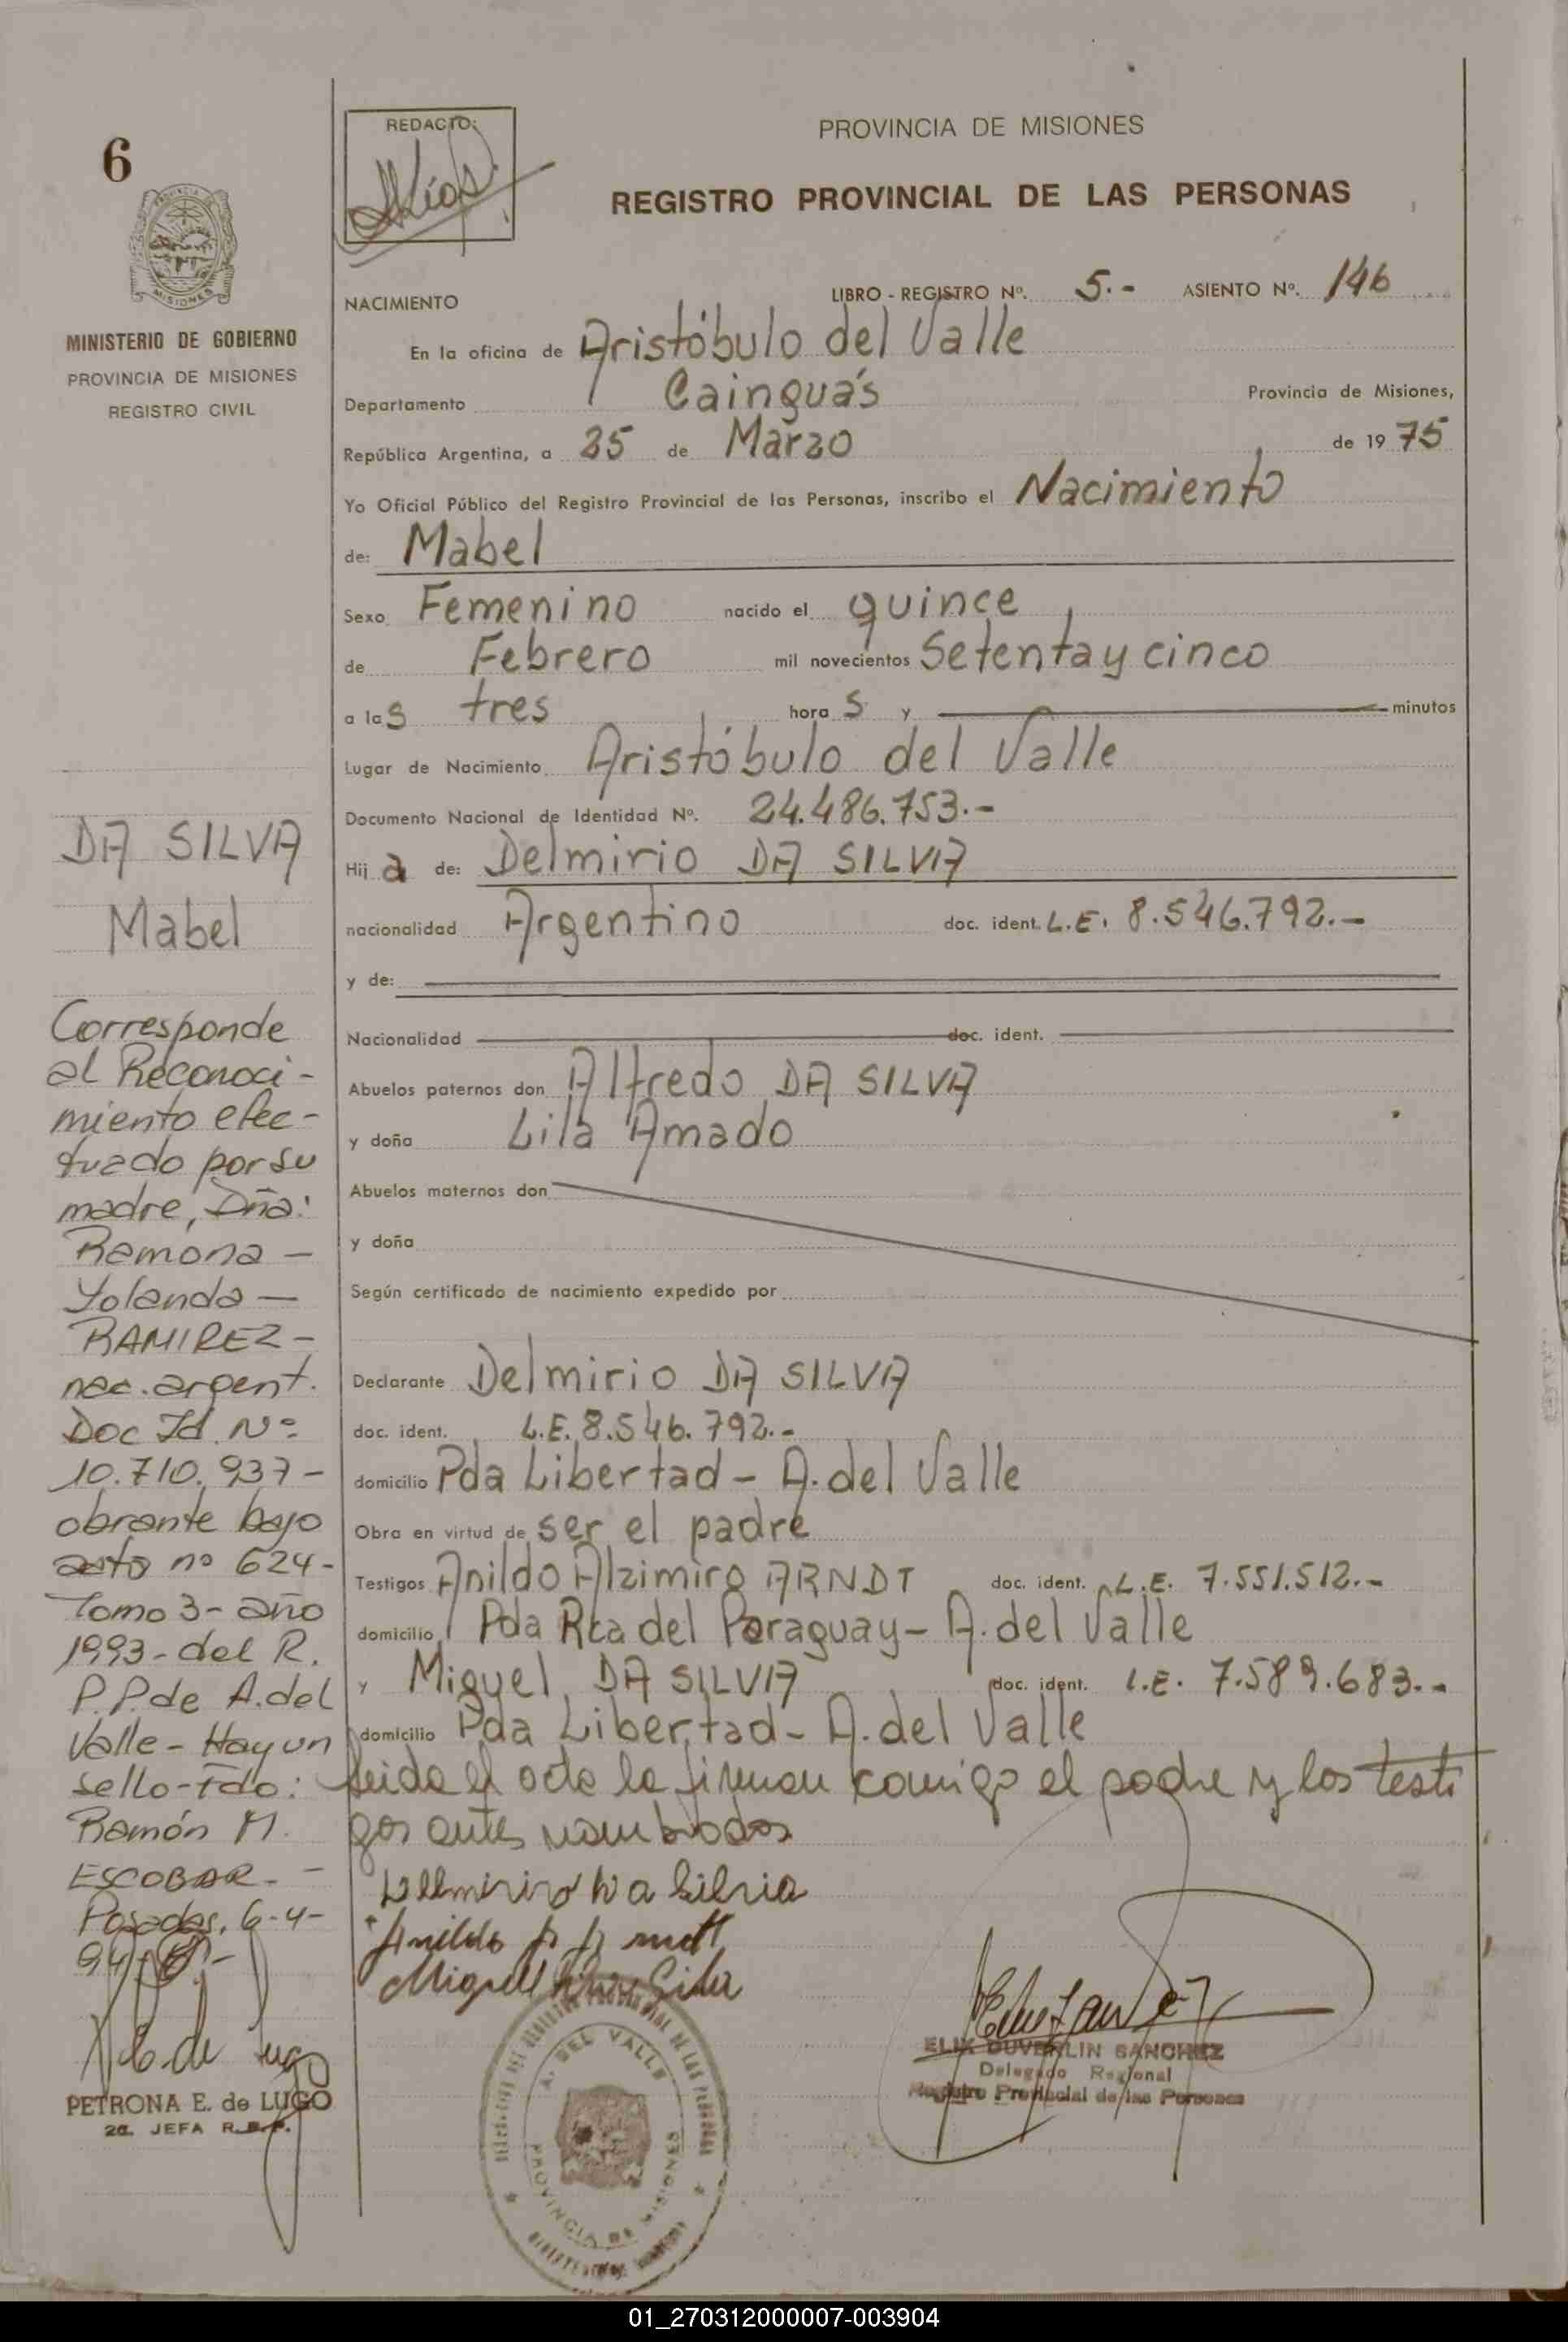 6
MINISTERIO DE GOBIERNO
PROVINCIA DE MISIONES
REGISTRO CIVIL
REDACTO:
PROVINCIA DE MISIONES
REGISTRO PROVINCIAL DE LAS PERSONAS
NACIMIENTO
LIBRO - REGISTRO Nº. 5.- ASIENTO Nº. 146
En la oficina de Aristóbulo del Valle
Departamento Cainguás Provincia de Misiones,
República Argentina, a 25 de Marzo de 1975
Yo Oficial Público del Registro Provincial de las Personas, inscribo el Nacimiento
de: Mabel
Sexo Femenino nacido el quince
de Febrero mil novecientos Setenta y cinco
a las tres horas y minutos
Lugar de Nacimiento Aristóbulo del Valle
Documento Nacional de Identidad Nº. 24.486.753.-
Hija de: Delmirio DA SILVA
nacionalidad Argentino doc. ident. L.E. 8.546.792.-
y de:
Nacionalidad doc. ident.
Abuelos paternos don Alfredo DA SILVA
y doña Lila Amado
Abuelos maternos don
y doña
Según certificado de nacimiento expedido por
Declarante Delmirio DA SILVA
doc. ident. L.E. 8.546.792.-
domicilio Pda Libertad - A. del Valle
Obra en virtud de ser el padre
Testigos Anildo Alzimiro ARNDT doc. ident. L.E. 7.551.512.-
domicilio Pda Rca del Paraguay - A. del Valle
y Miguel DA SILVA doc. ident. L.E. 7.589.683.-
domicilio Pda Libertad - A. del Valle
Leida el acta la firman conmigo el padre y los testi
gos antes nombrados
DA SILVA
Mabel
Corresponde
al Reconoci-
miento efec-
tuado por su
madre, Dña:
Ramona -
Yolanda -
RAMIREZ -
nac. argent.
Doc Id. Nº
10.710.937 -
obrante bajo
acta nº 624 -
Tomo 3 - año
1993 - del R.
P.P. de A. del
Valle - Hay un
sello - Fdo:
Ramón M.
ESCOBAR. -
Posadas, 6-4-
94
PETRONA E. de LUGO
2a. JEFA R.P.P.
A. DEL VALLE
PROVINCIA DE MISIONES
ELIX DUVERLIN SANCHEZ
Delegado Regional
Registro Provincial de las Personas
01_270312000007-003904